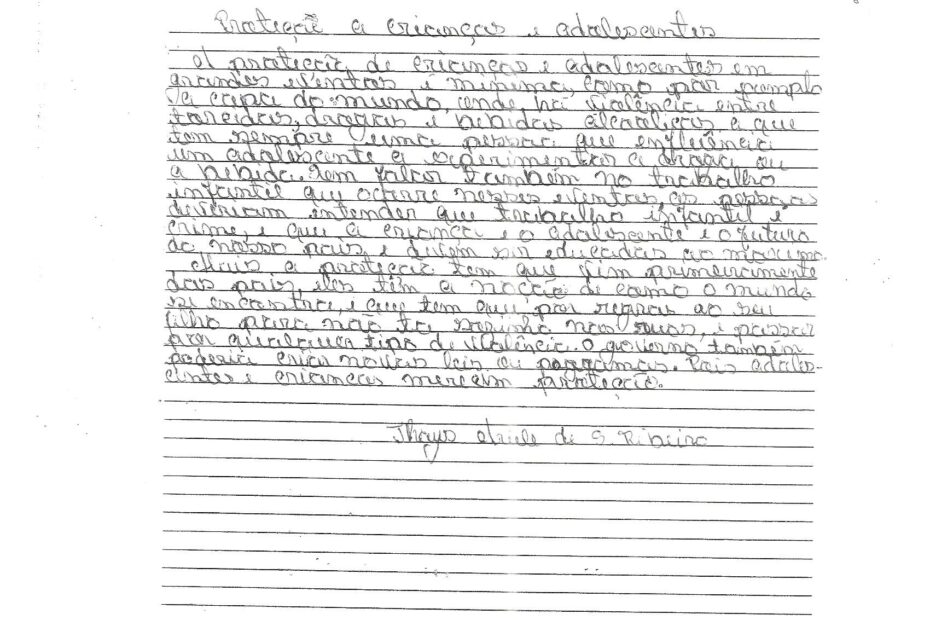 Proteção a crianças e adolescentes
A proteção de crianças e adolescentes em
grandes eventos é mínima, como por exemplo
na copa do mundo, onde há violência entre
torcidas, drogas e bebidas alcoolicas, e que
tem sempre uma pessoa que enfluência
um adolescente a experimentar a droga ou
a bebida. Sem falar também no trabalho
infantil que ocorre nesses eventos, as pessoas
deveriam intender que trabalho infantil é
crime, e que a criança e o adolescente é o futuro
do nosso país, e devem ser educadas ao máximo.
Mais a proteção tem que vim primeiramente
dos pais, eles têm a noção de como o mundo
se encontra, e que tem que por regras ao seu
filho para não ta sozinho nas ruas, e passar
por qualquer tipo de violência. O governo também
poderia criar novas leis ou . Pois adoles-
centes e crianças merecem proteção.
de S. Ribeiro